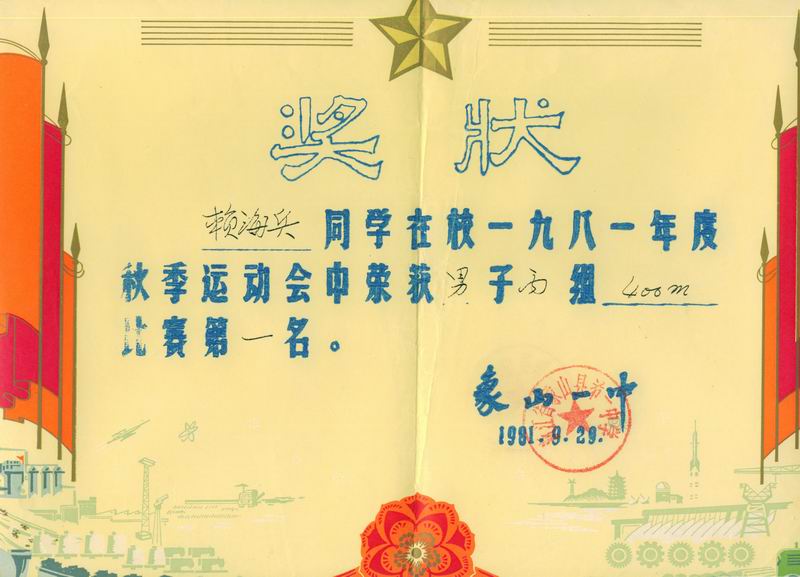 奖状
赖海兵同学在校一九八一年度
秋季运动会中荣获男子丙组400m
比赛第一名。
象山一中
1981.9.29.